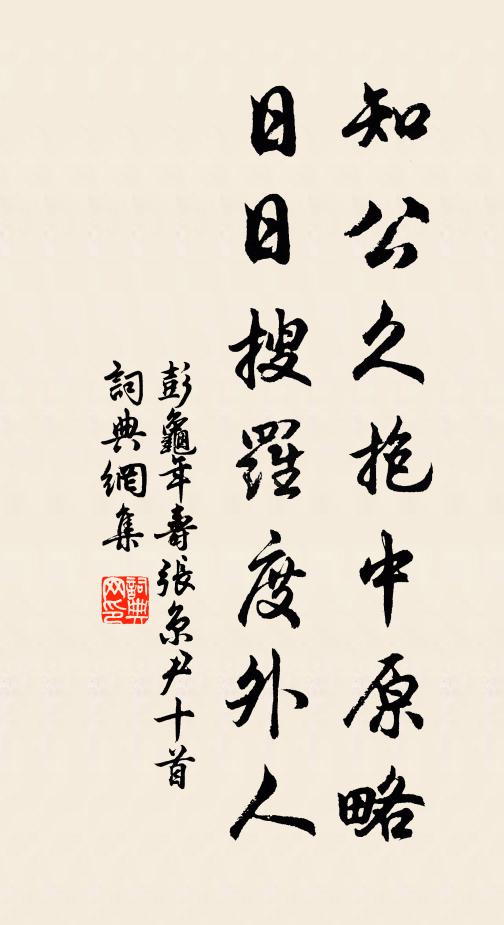 知公久抱中原略
日日搜羅度外人
彭龜年壽張京尹十首
詞典網集
詞典網印